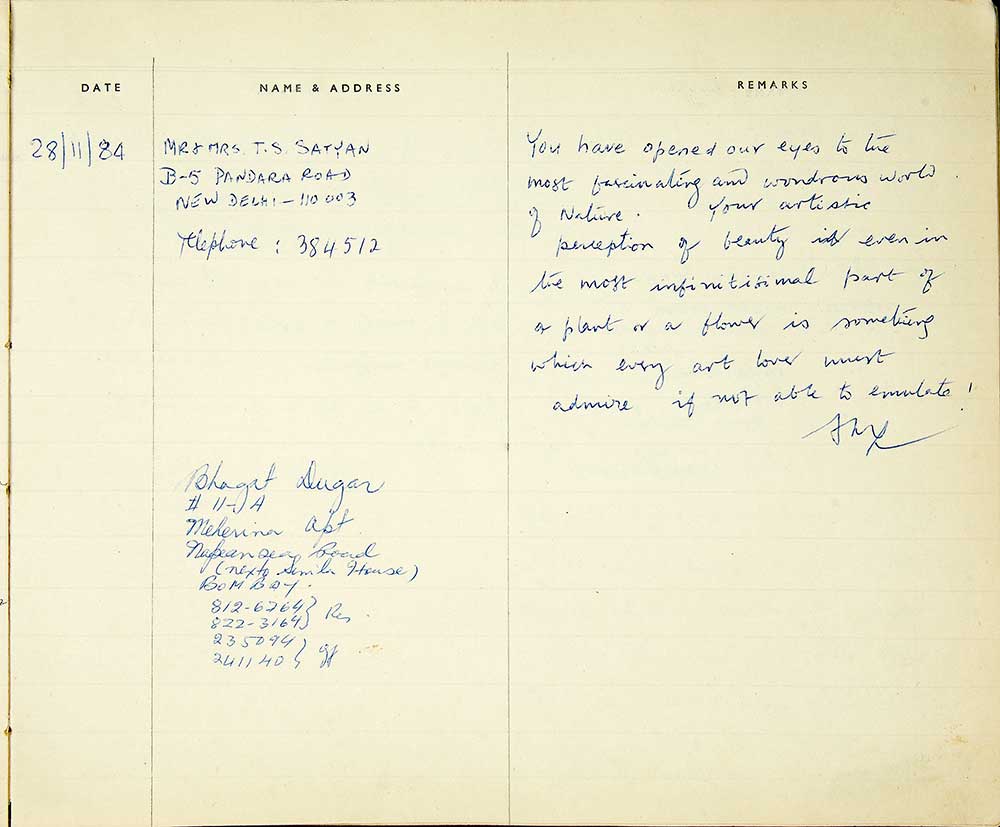 DATE
NAME & ADDRESS
REMARKS
28/11/84
MR & MRS. T.S. SATYAN
B-5 PANDARA ROAD
NEW DELHI - 110 003
Telephone : 384512
You have opened our eyes to the
most fascinating and wondrous world
of Nature. Your artistic
perception of beauty even in
the most infinitisimal part of
a plant or a flower is something
which every art lover must
admire if not able to emulate!
Bhagat Dugar
# 11-A
Meherina Apt.
Napeansea Road
(next to Simla House)
BOMBAY.
812-6264 } Res.
822-3164
235094 } off
241140